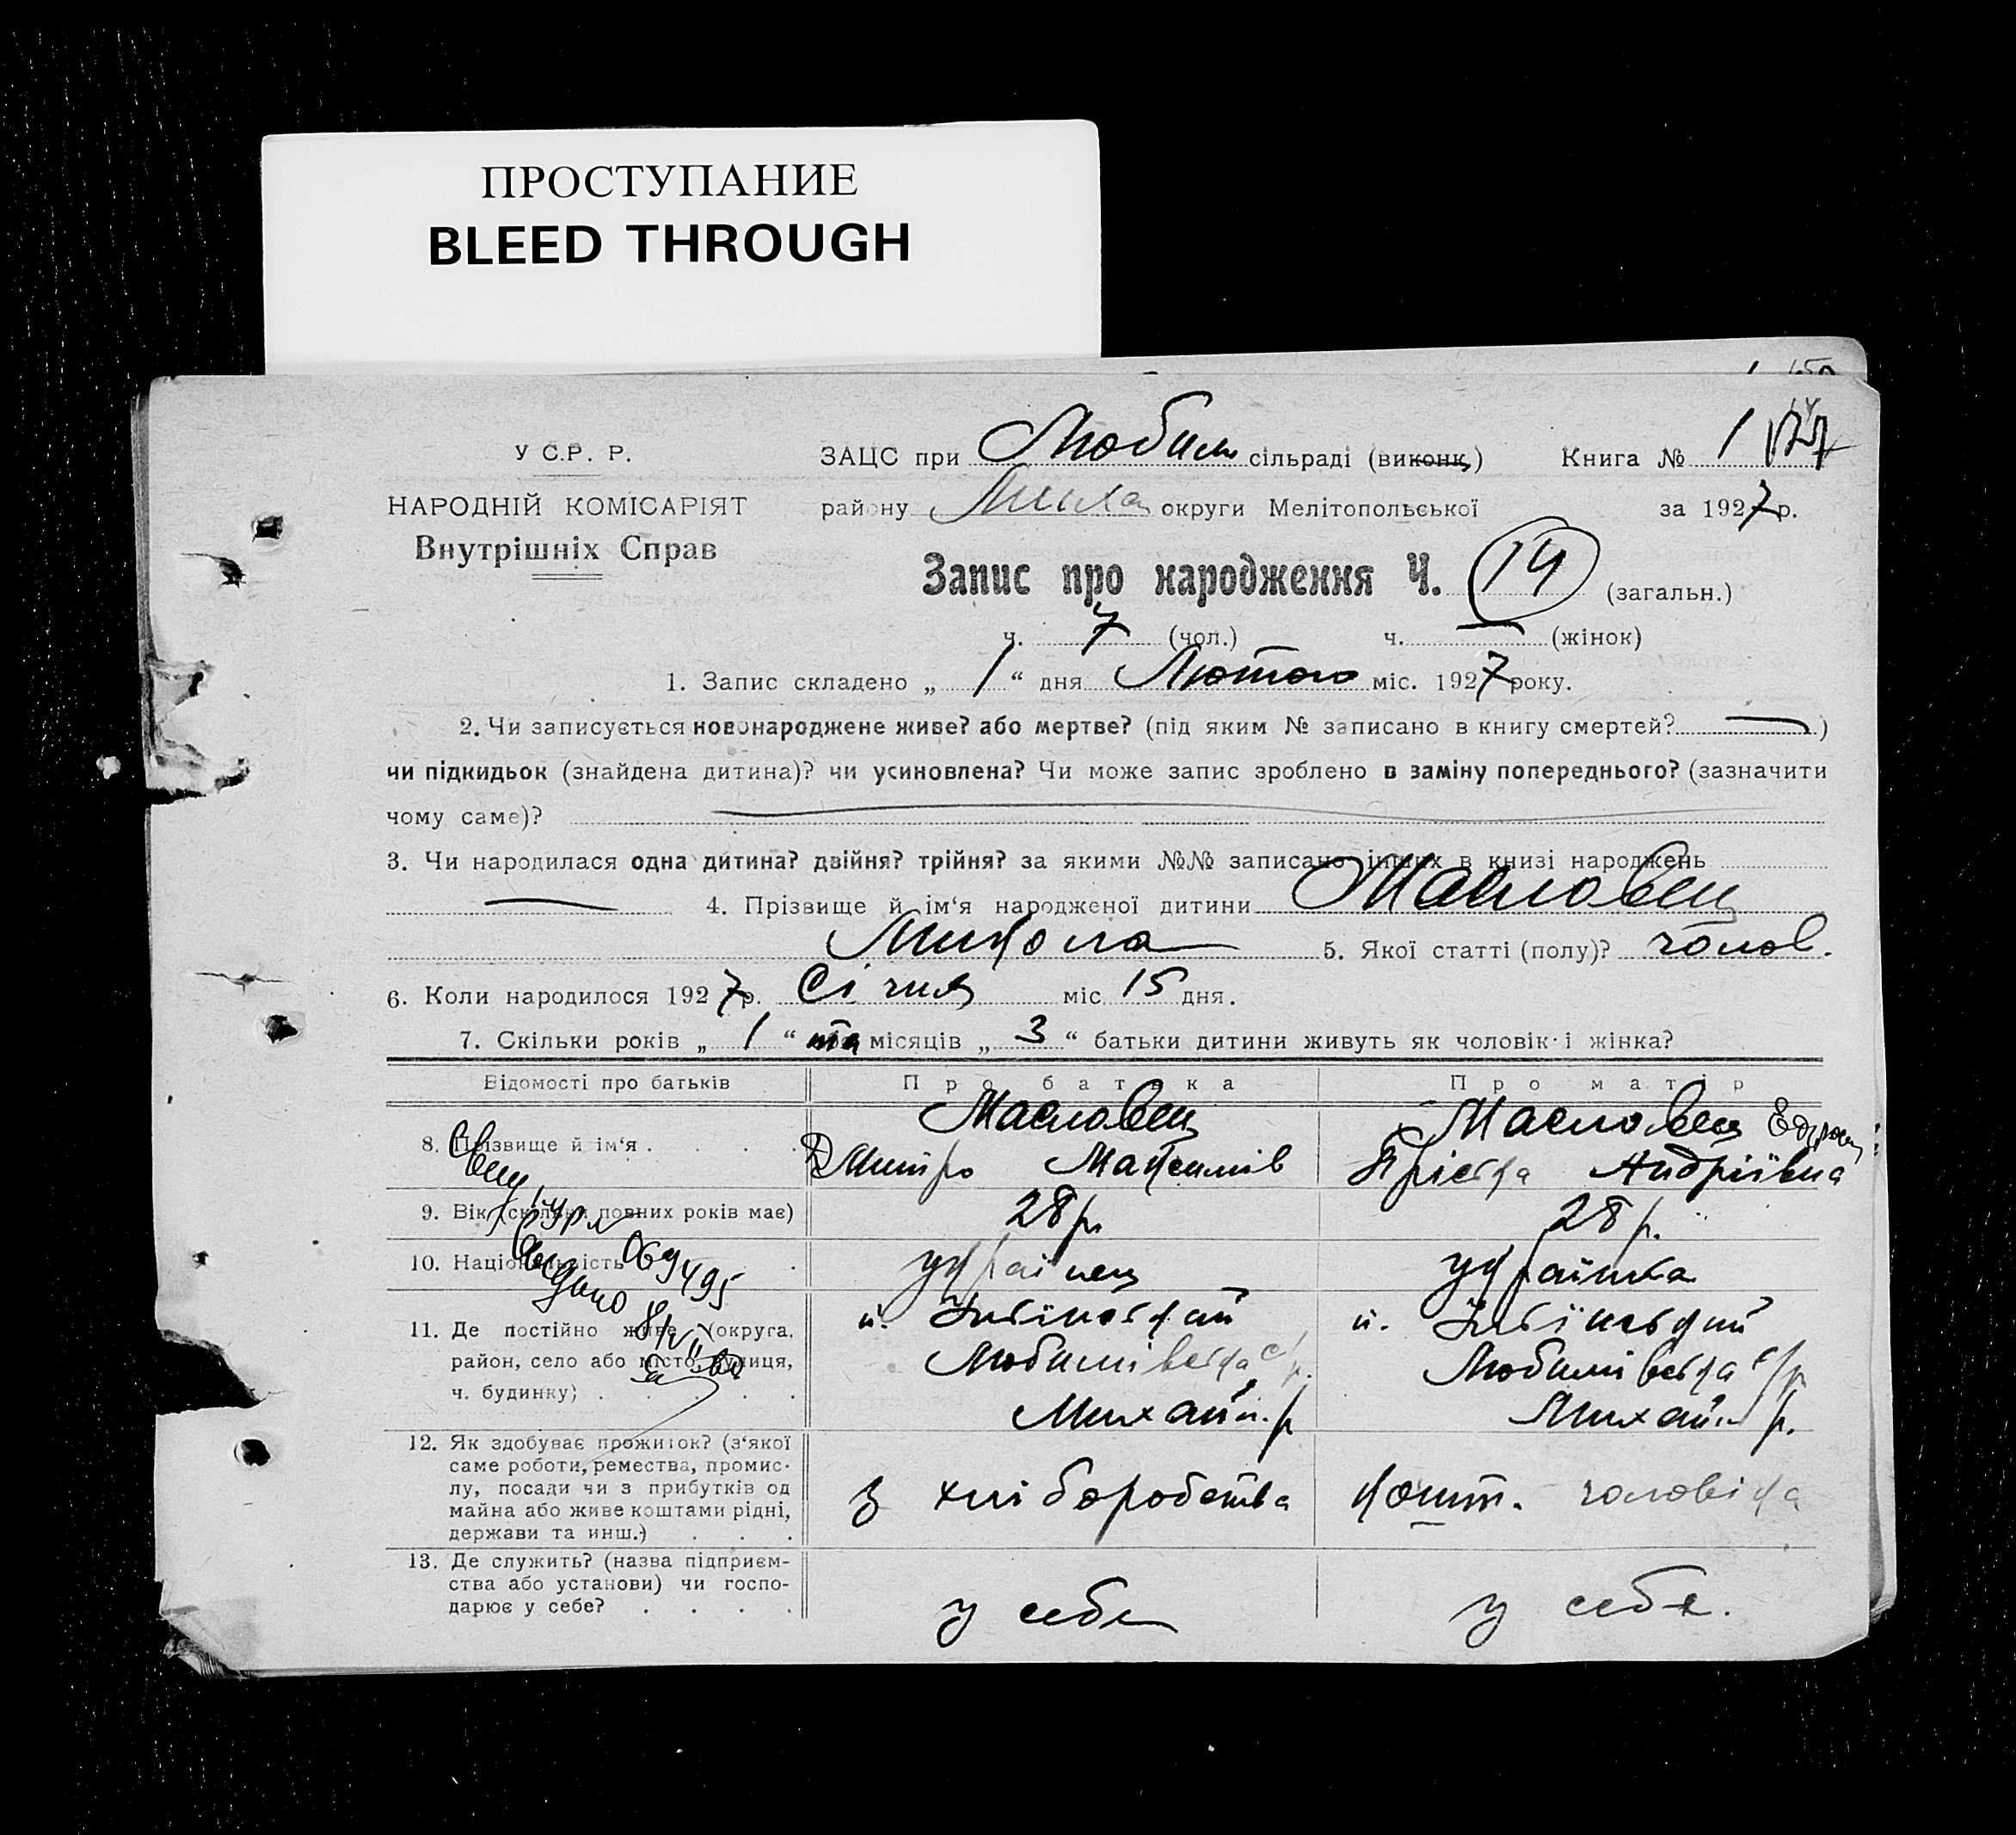 ПРОСТУПАНИЕ
BLEED THROUGH
У С.Р. Р.
НАРОДНІЙ КОМІСАРІЯТ
Внутрішніх Справ
ЗАЦС при Любим сільраді (виконк) Книга № 1
району Миха округи Мелітопольської за 1927 р.
Запис про народження Ч. 14 (загальн.)
ч. 7 (чол.) ч. — (жінок)
1. Запис складено „ 1 “ дня Лютого міс. 1927 року.
2. Чи записується новонароджене живе? або мертве? (під яким № записано в книгу смертей? — )
чи підкидьок (знайдена дитина)? чи усиновлена? Чи може запис зроблено в заміну попереднього? (зазначити
чому саме)?
3. Чи народилася одна дитина? двійня? трійня? за якими №№ записано інших в книзі народжень
— 4. Прізвище й ім‘я народженої дитини Масловец
Микола 5. Якої статті (полу)? чолов.
6. Коли народилося 1927 р. Січня міс. 15 дня.
7. Скільки років „ 1 “ та місяців „ 3 “ батьки дитини живуть як чоловік і жінка?
Відомості про батьків Про батька Про матір
8. Прізвище й ім‘я . . . .
Масловец
Дмитро Максимів
Масловец
Андріївна
9. Вік (скільки повних років має) 28 р. 28 р.
10. Національність . українец українка
11. Де постійно живе (округа,
район, село або місто, вулиця,
ч. будинку) . . . . .
Любимівська с/р.
Михайл. р
Любимівська с/р
Михайл р.
12. Як здобуває прожиток? (з‘якої
саме роботи, ремества, промис-
лу, посади чи з прибутків од
майна або живе коштами рідні,
держави та инш.) . . .
з хліборобства
кошт. чоловіка
13. Де служить? (назва підприєм-
ства або установи) чи госпо-
дарює у себе? . . . .
у себе
у себе.
069495